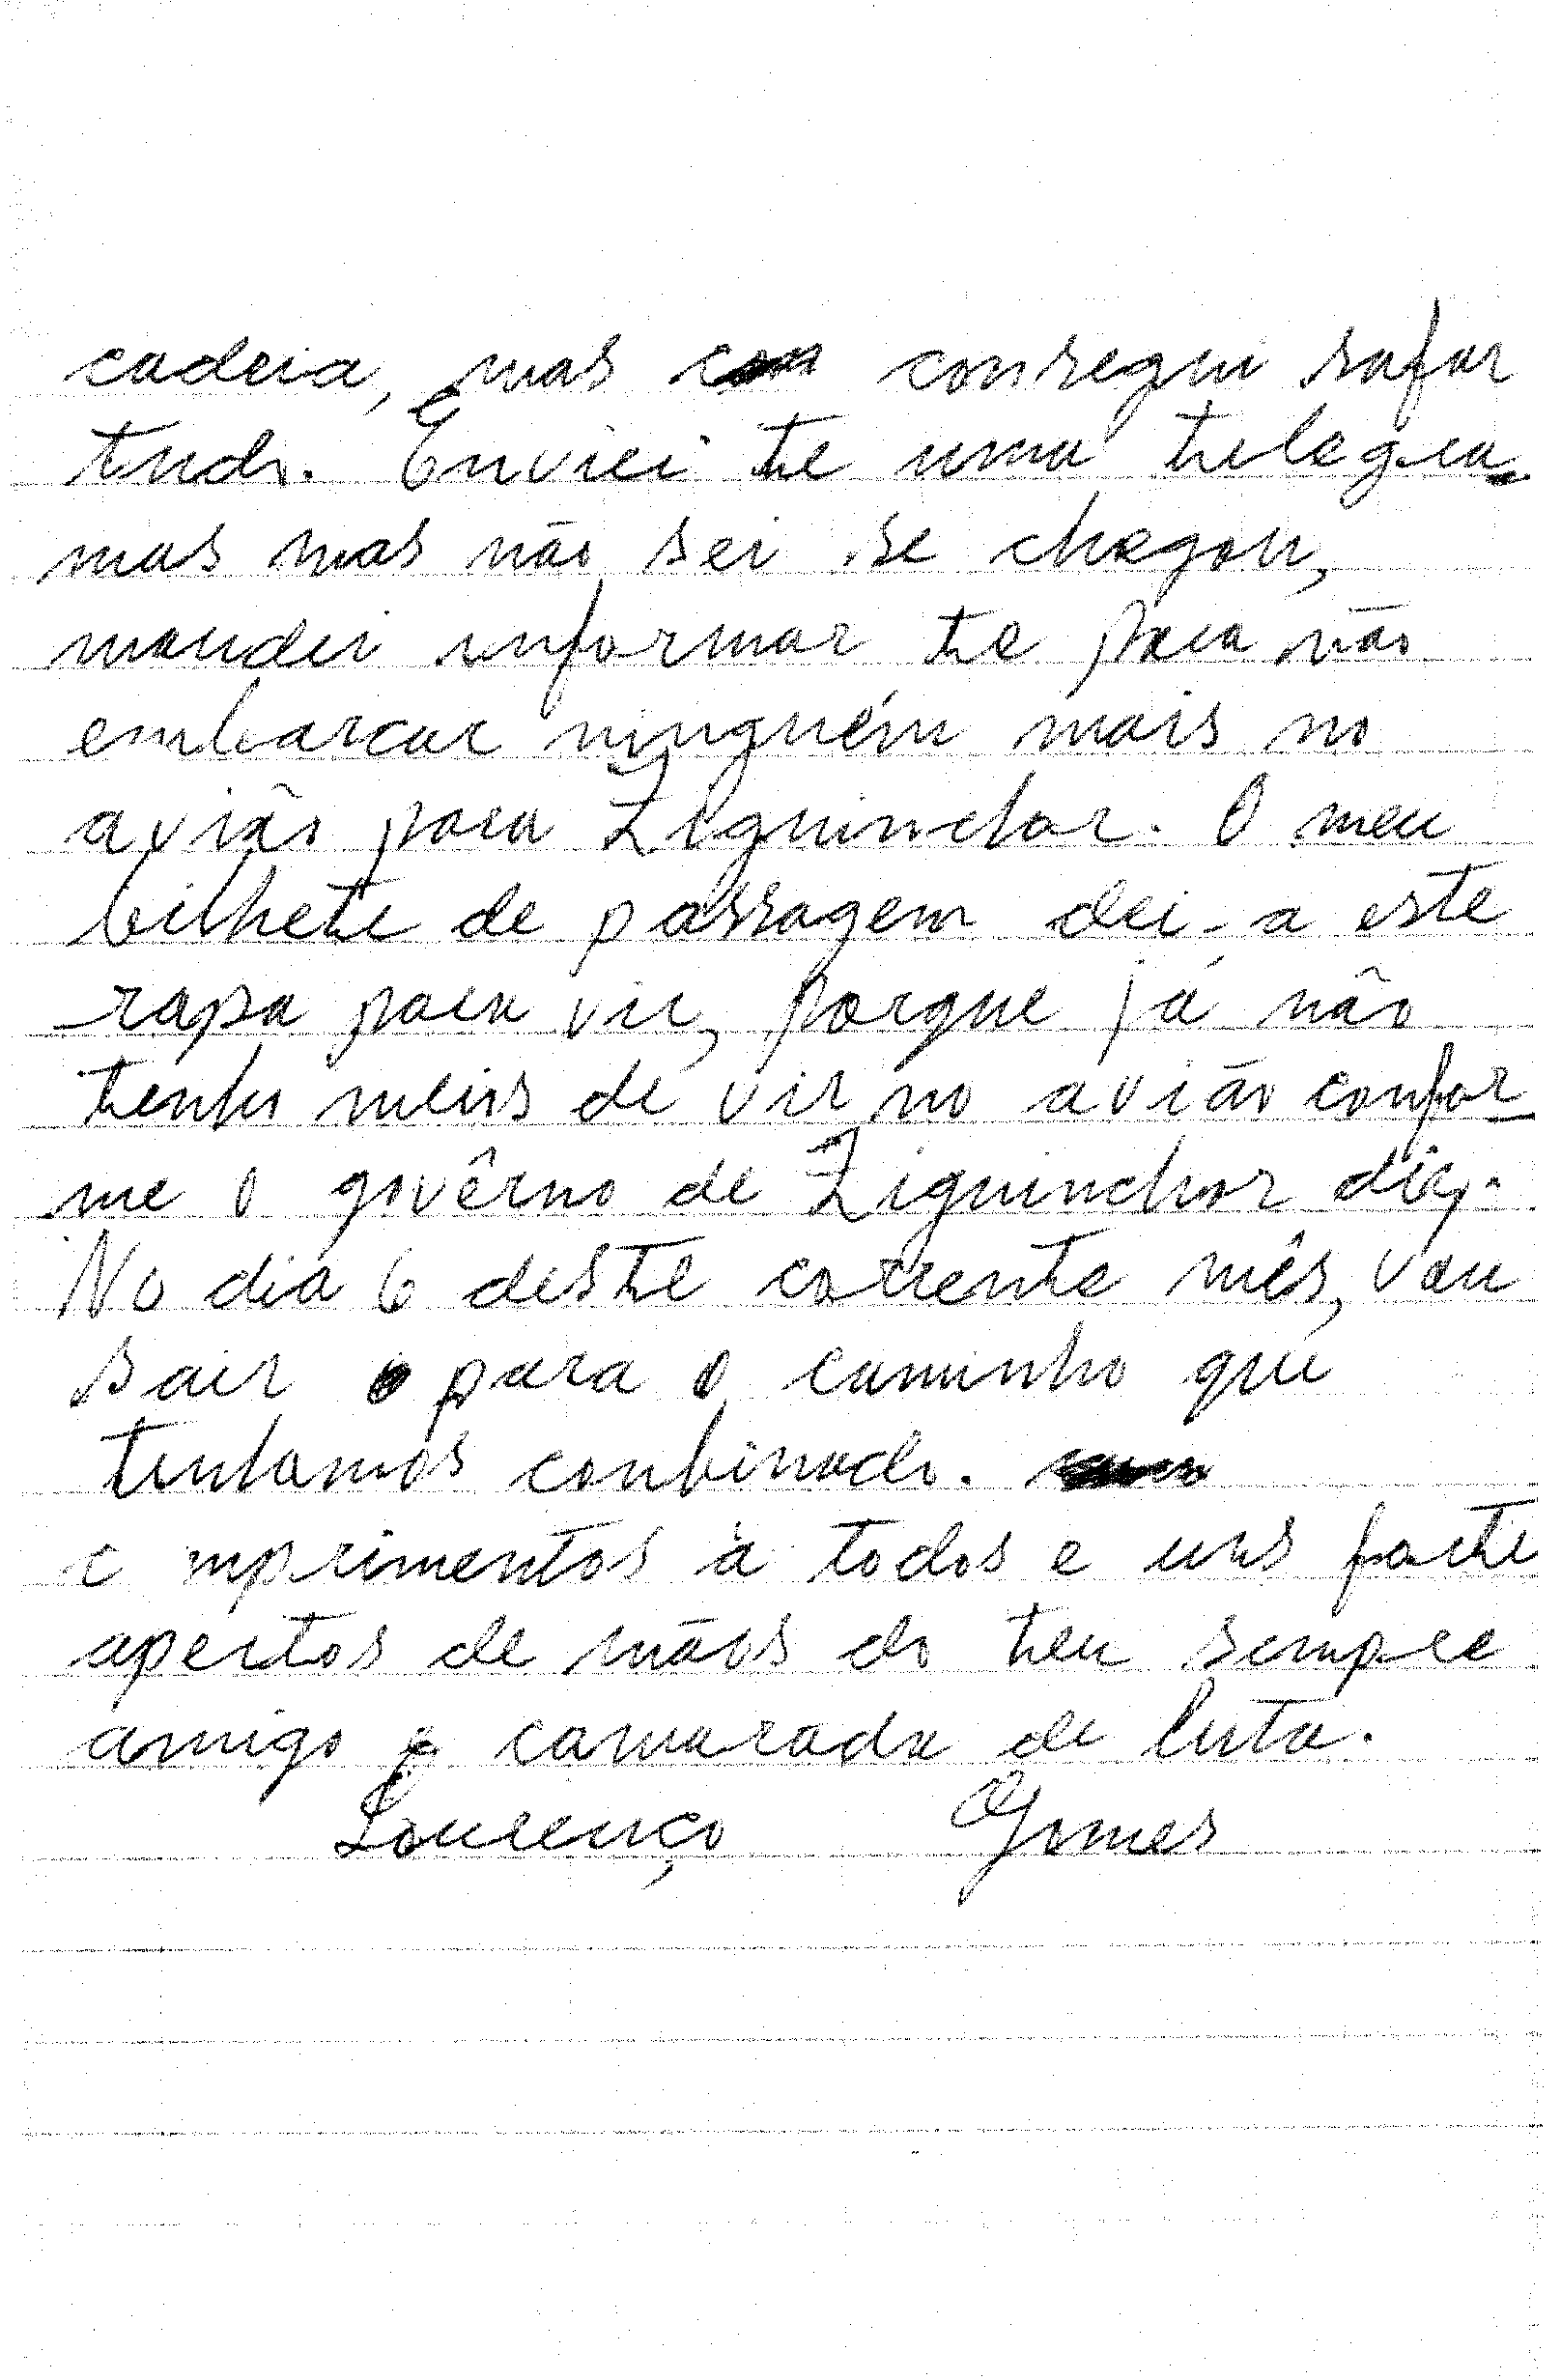 cadeia, mas consegui safar
tudo. Enviei te uma telegra-
mas mas não sei se chegou,
mandei informar te para não
embarcar ninguém mais no
avião para Ziguinchor. O meu
bilhete de passagem dei-a este
rapa para vir, porque já não
tenho meios de vir no avião confor
me o govêrno de Ziguinchor diz.
No dia 6 deste corrente mês, vou
sair para o caminho que
tenhamos conbinado.
c mprimentos à todos e uns forte
apertos de mãos do teu sempre
amigo e camarada de luta.
Lourenço Gomes